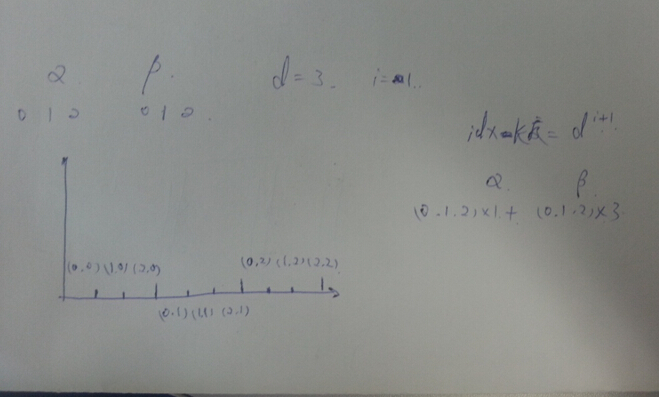 α β. d=3. i=1.
0 1 2 0 1 2.
idx = d^{i+1}
α β
(0.1.2)×1+ (0.1.2)×3
(0,0) (1,0) (2,0) (0,2) (1,2) (2,2)
(0.1) (1,1) (2.1)